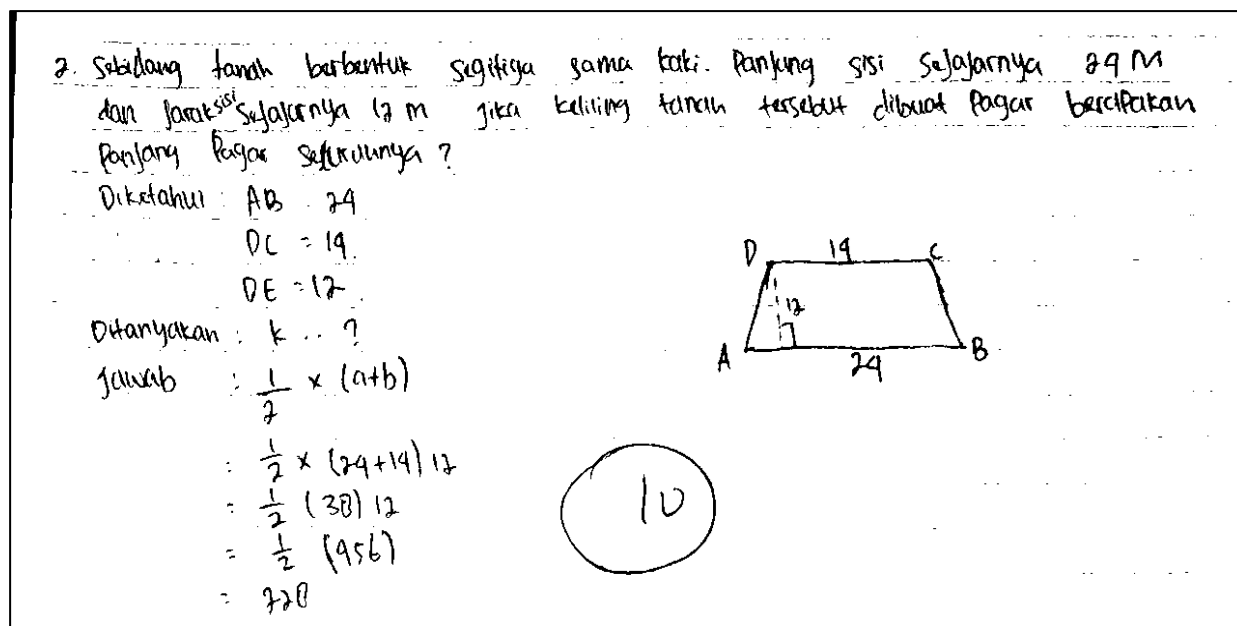 2. Sebidang tanah berbentuk segitiga sama kaki. Panjang sisi sejajarnya 24 M
dan Jarak sisi sejajarnya 12 m jika keliling tanah tersebut dibuat Pagar berapakah
Panjang Pagar seluruhnya ?
Diketahui : AB 24
DC = 14
DE = 12
Ditanyakan : k .. ?
Jawab : 1/2 × (a+b)
: 1/2 × (24+14) 12
: 1/2 (38) 12
= 1/2 (456)
= 228
D 14 C
12
A 24 B
10